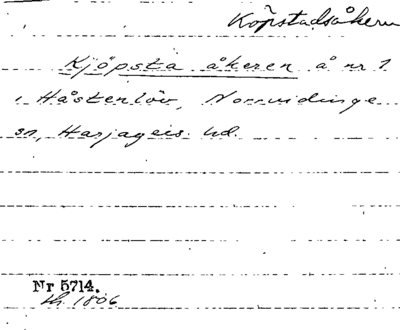 Köpstadsåkern
Kjöpsta åkeren å nr 1
i Håstenlöv, Norrvidinge
sn, Harjagers hd.
Nr 5714.
1806